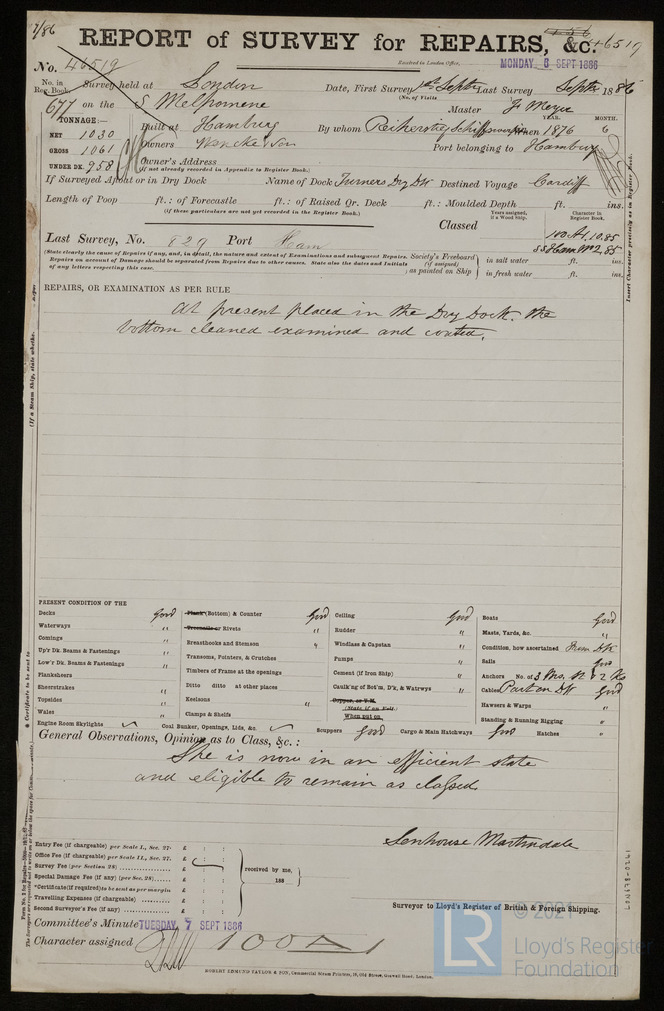 7/86
REPORT of SURVEY for REPAIRS, &c. 46519
No. 46519
Received in London Office,
MONDAY 6 SEPT 1886
No. in Reg. Book. Survey held at London Date, First Survey 1st Septr Last Survey Septr 1886
(No. of Visits
677 on the S Melpomene Master J. Meyer
TONNAGE:—
NET 1030
GROSS 1061
UNDER DK. 958
Built at Hamburg By whom Reiherstieg When 1876 YEAR. MONTH. 6
Owners Wencke & Son Port belonging to Hamburg
Owner's Address
(If not already recorded in Appendix to Register Book.)
If Surveyed Afloat or in Dry Dock Name of Dock Turners Dry Dk Destined Voyage Cardiff
Length of Poop ft.: of Forecastle ft.: of Raised Qr. Deck ft.: Moulded Depth ft. ins.
(If these particulars are not yet recorded in the Register Book.)
Classed
Years assigned, if a Wood Ship.
Character in Register Book.
100 A1, 10,85
Last Survey, No. 829 Port Ham
(State clearly the cause of Repairs if any, and, in detail, the nature and extent of Examinations and subsequent Repairs. Repairs on account of Damage should be separated from Repairs due to other causes. State also the dates and Initials of any letters respecting this case.
Society's Freeboard (if assigned) as painted on Ship
in salt water ft. ins.
in fresh water ft. ins.
Insert Character precisely as in Register Book.
REPAIRS, OR EXAMINATION AS PER RULE
At present placed in the Dry Dock. the
bottom cleaned examined and coated.
(If a Steam Ship, state whether
PRESENT CONDITION OF THE
Decks Good
Waterways "
Comings "
Up'r Dk. Beams & Fastenings "
Low'r Dk. Beams & Fastenings "
Planksheers
Sheerstrakes "
Topsides "
Wales "
Engine Room Skylights
Plank (Bottom) & Counter Good
Treenails or Rivets "
Breasthooks and Stemson "
Transoms, Pointers, & Crutches
Timbers of Frame at the openings
Ditto ditto at other places
Keelsons "
Clamps & Shelfs
Coal Bunker, Openings, Lids, &c.
Ceiling Good
Rudder "
Windlass & Capstan "
Pumps "
Cement (if Iron Ship) "
Caulk'ng of Bot'm, D'k, & Watrwys "
Copper, or Y.M.
(State if on Felt)
When put on
Scuppers Good Cargo & Main Hatchways Good Hatches "
Boats Good
Masts, Yards, &c. "
Condition, how ascertained From Dk
Sails Good
Anchors No. of 3
Cables Part on Dk Good
Hawsers & Warps "
Standing & Running Rigging "
General Observations, Opinion as to Class, &c.:
She is now in an efficient state
and eligible to remain as classed.
Senhouse Martindale
Entry Fee (if chargeable) per Scale I., Sec. 27. £ : :
Office Fee (if chargeable) per Scale II., Sec. 27. £ : :
Survey Fee (per Section 28) £ : :
Special Damage Fee (if any) (per Sec. 28) £ : :
*Certificate (if required) to be sent as per margin £
Travelling Expenses (if chargeable) £
Second Surveyor's Fee (if any) £
received by me,
188
Surveyor to Lloyd's Register of British & Foreign Shipping.
Committee's Minute TUESDAY 7 SEPT 1886
Character assigned 100A1
ROBERT EDMUND TAYLOR & SON, Commercial Steam Printers, 19, Old Street, Goswell Road, London.
LON678-0261
© 2021
LR Lloyd's Register
Foundation